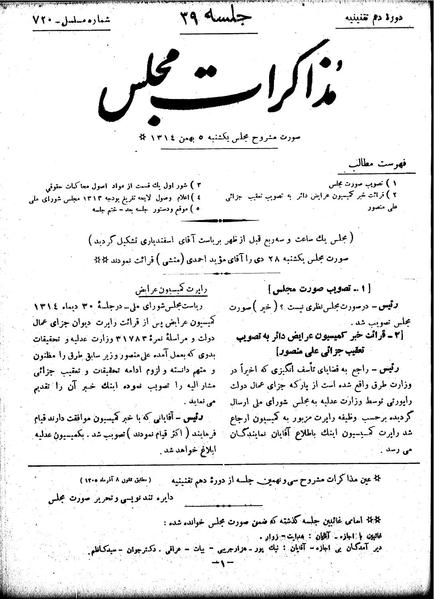 دورهٔ دهم تقنینیه
جلسه ۳۹
شماره مسلسل - ۷۲۰
مذاکرات مجلس
صورت مشروح مجلس یکشنبه ۵ بهمن ۱۳۱۴ ※
فهرست مطالب
۱ ) تصویب صورت مجلس
۲ ) قرائت خبر کمیسیون عرایض دائر به تصویب تعقیب جزائی
علی منصور
۳ ) شور اول یک قسمت از مواد اصول محاکمات حقوقی
۴ ) اعلام وصول لایحه تفریغ بودجه ۱۳۱۳ مجلس شورای ملی
۵ ) موقع و دستور جلسه بعد - ختم جلسه
(مجلس یک ساعت و سه ربع قبل از ظهر بریاست آقای اسفندیاری تشکیل گردید)
صورت مجلس یکشنبه ۲۸ دی را آقای مؤید احمدی (منشی) قرائت نمودند ※※
[ ۱ - تصویب صورت مجلس ]
رئیس - در صورت مجلس نظری نیست ؟ (خبر) صورت
مجلس تصویب شد .
[۲ - قرائت خبر کمیسیون عرایض دائر به تصویب
تعقیب جزائی علی منصور]
رئیس - راجع به قضایای تأسف انگیزی که اخیراً در
وزارت طرق واقع شده است از پارکه جزای عمال دولت
راپورتی توسط وزارت عدلیه به مجلس شورای ملی ارسال
گردیده بر حسب وظیفه راپرت مزبور به کمیسیون ارجاع
شد راپرت کمیسیون اینک باطلاع آقایان نمایندگان
می رسد .
راپرت کمیسیون عرایض
ریاست مجلس شورای ملی - در جلسهٔ ۳۰ دیماه ۱۳۱۴
کمیسیون عرایض پس از قرائت راپرت دیوان جزای عمال
دولت و مراسلهٔ نمرهٔ ۳۱۷۸۳ وزارت عدلیه و تحقیقات
بدوی که بعمل آمده علی منصور وزیر سابق طرق را مظنون
و متهم دانسته و لزوم ادامه تحقیقات و تعقیب جزائی
مشار الیه را تصویب نموده اینک خبر آن را تقدیم
می نماید .
رئیس - آقایانی که با خبر کمیسیون موافقت دارند قیام
فرمایند (اکثر قیام نمودند) تصویب شد . بکمیسیون عدلیه
ابلاغ خواهد شد .
※ عین مذاکرات مشروح سی و نهمین جلسه از دورهٔ دهم تقنینیه
(مطابق قانون ۸ آذر ماه ۱۳۰۵)
دایره تند نویسی و تحریر صورت مجلس
※※ اسامی غائبین جلسه گذشته که ضمن صورت مجلس خوانده شده :
غائبین با اجازه - آقایان : هدایت - زوار .
دیر آمدگان بی اجازه - آقایان : نیک پور - هزارجریبی - بیات - عراقی - دکتر جوان - سید کاظم.
-۱-